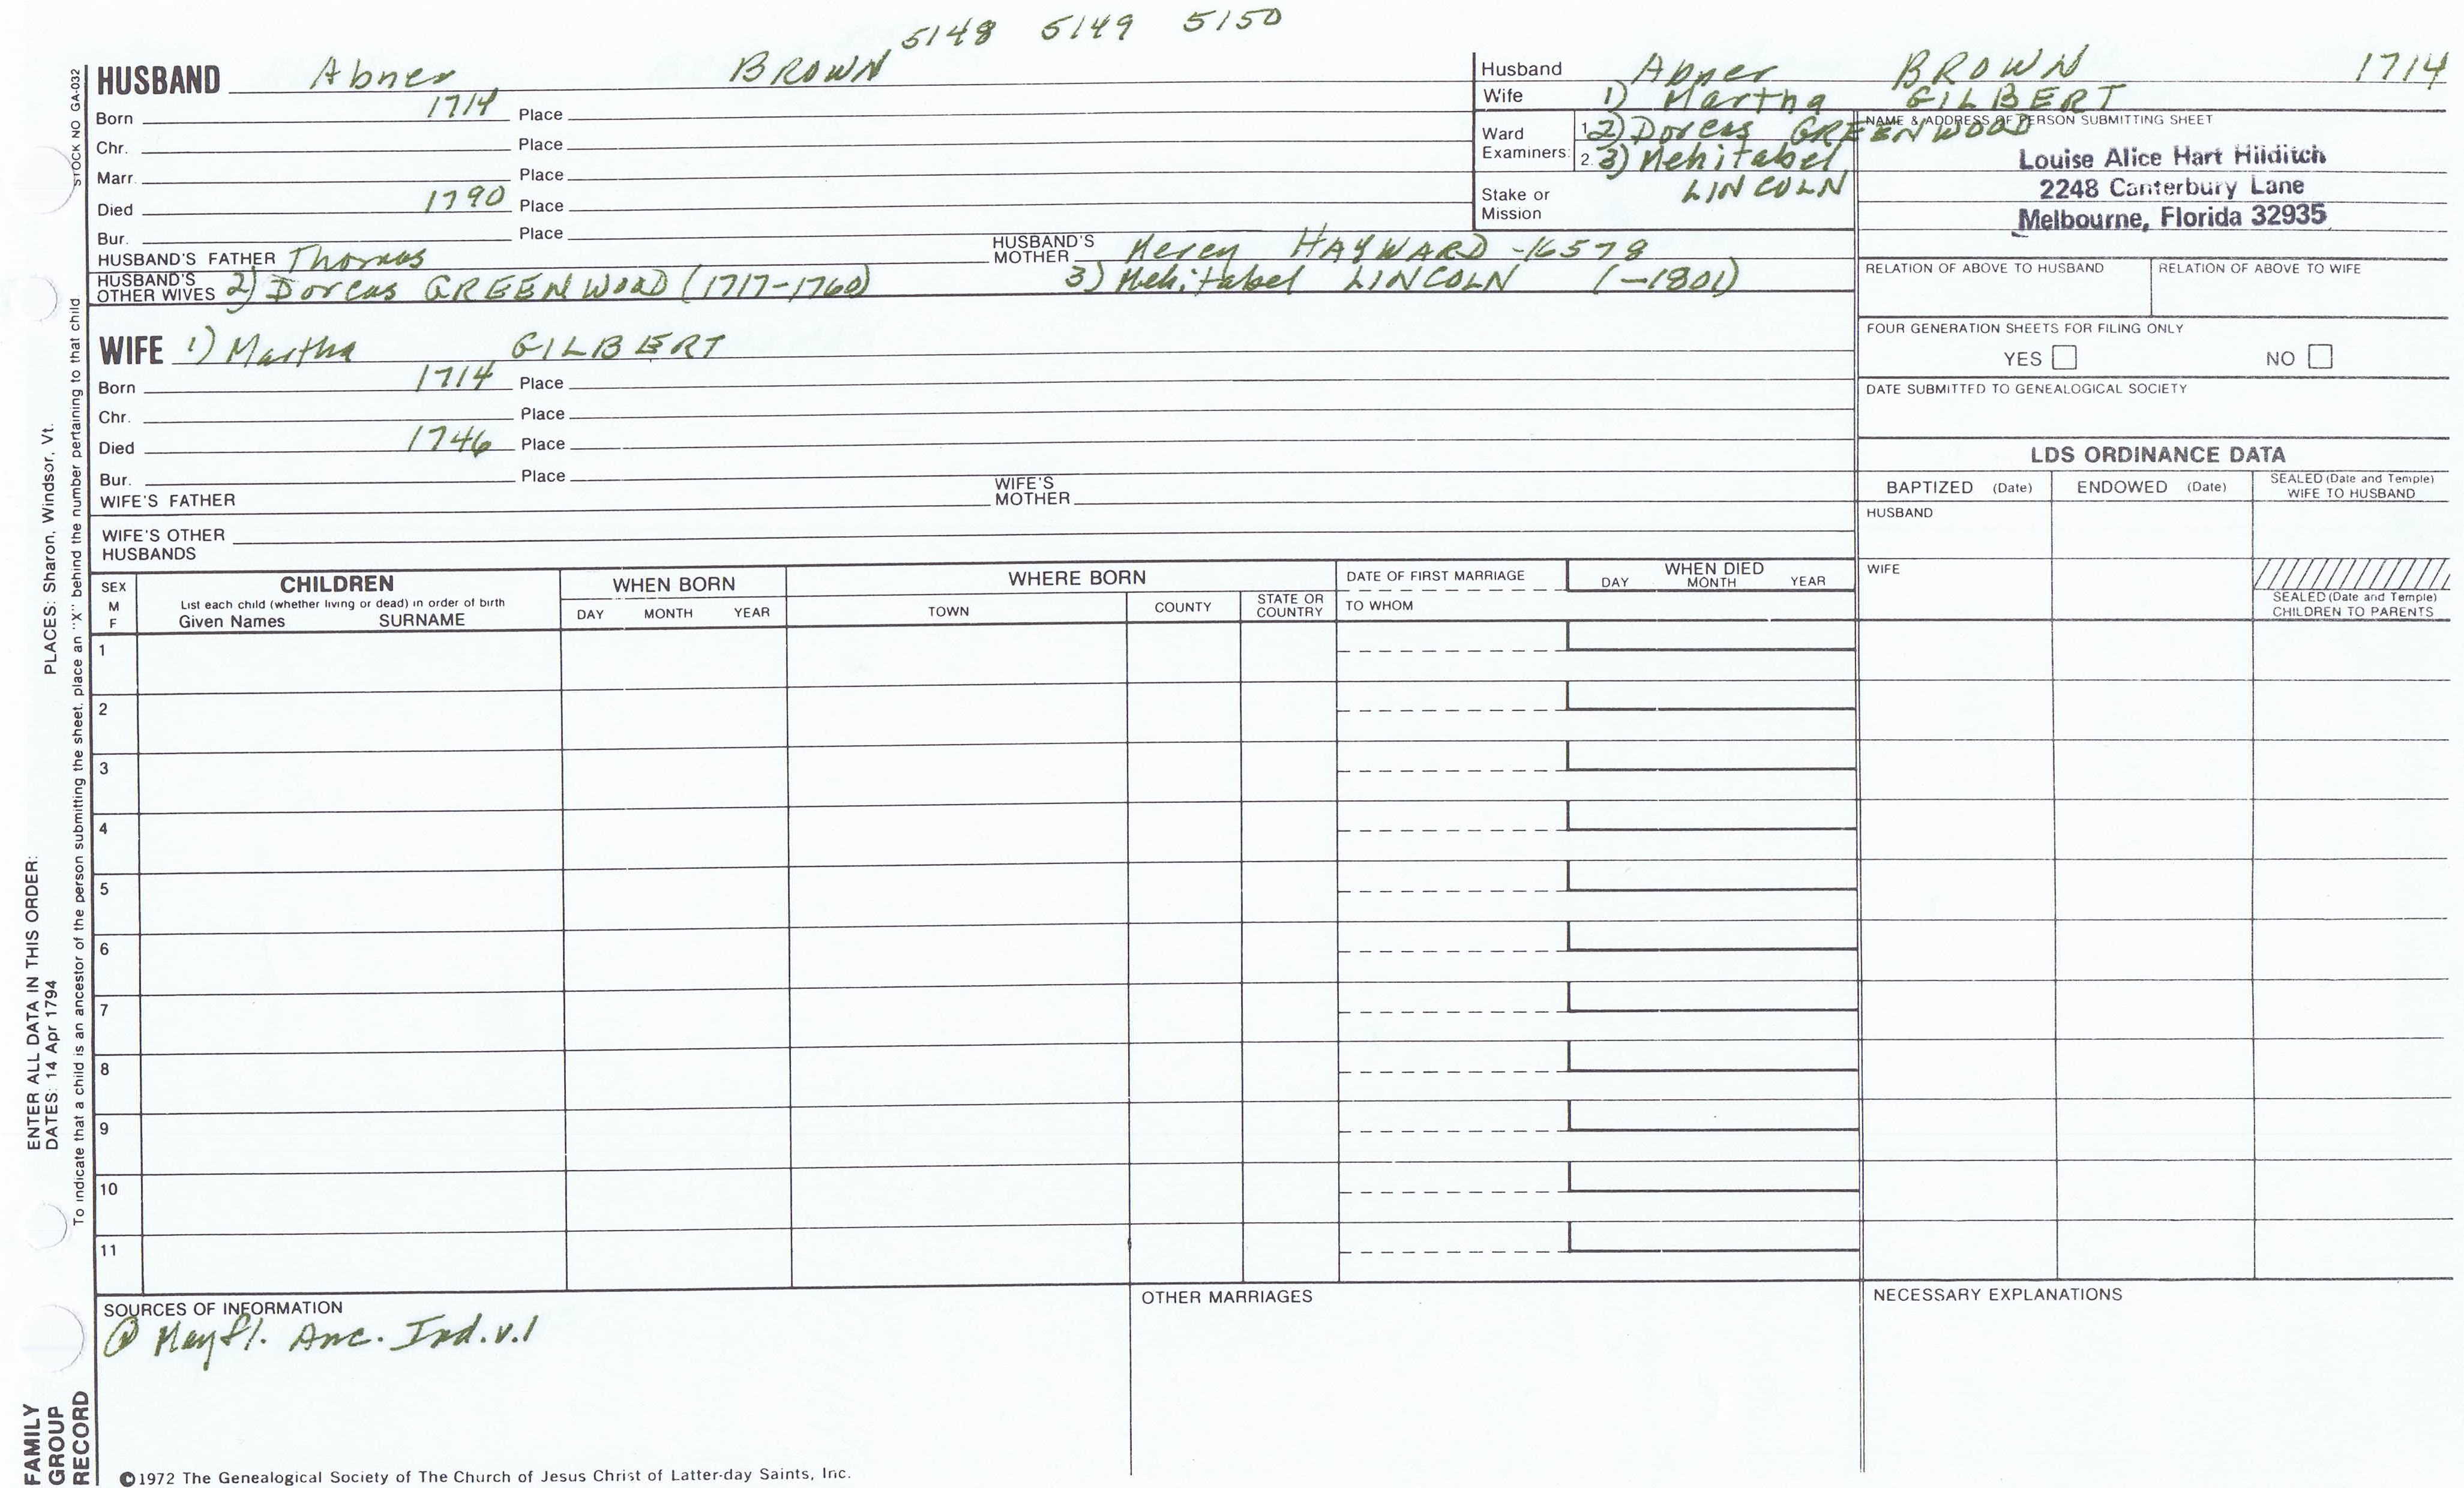 5148 5149 5150
HUSBAND Abner BROWN
Born 1714 Place
Chr. Place
Marr. Place
Died 1790 Place
Bur. Place
HUSBAND'S FATHER Thomas HUSBAND'S MOTHER Mercy HAYWARD -16578
HUSBAND'S OTHER WIVES 2) Dorcas GREENWOOD (1717-1760) 3) Mehitabel LINCOLN (-1801)
WIFE 1) Martha GILBERT
Born 1714 Place
Chr. Place
Died 1746 Place
Bur. Place
WIFE'S FATHER WIFE'S MOTHER
WIFE'S OTHER HUSBANDS
Husband Abner BROWN 1714
Wife 1) Martha GILBERT
Ward Examiners: 1. 2) Dorcas GREENWOOD
2. 3) Mehitabel LINCOLN
Stake or Mission
NAME & ADDRESS OF PERSON SUBMITTING SHEET
Louise Alice Hart Hilditch
2248 Canterbury Lane
Melbourne, Florida 32935
RELATION OF ABOVE TO HUSBAND RELATION OF ABOVE TO WIFE
FOUR GENERATION SHEETS FOR FILING ONLY
YES NO
DATE SUBMITTED TO GENEALOGICAL SOCIETY
LDS ORDINANCE DATA
BAPTIZED (Date) ENDOWED (Date) SEALED (Date and Temple) WIFE TO HUSBAND
HUSBAND
WIFE
SEALED (Date and Temple) CHILDREN TO PARENTS
SEX M F
CHILDREN
List each child (whether living or dead) in order of birth
Given Names SURNAME
WHEN BORN
DAY MONTH YEAR
WHERE BORN
TOWN COUNTY STATE OR COUNTRY
DATE OF FIRST MARRIAGE
TO WHOM
WHEN DIED
DAY MONTH YEAR
1
2
3
4
5
6
7
8
9
10
11
SOURCES OF INFORMATION
Mayfl. Anc. Ind. v.1
OTHER MARRIAGES
NECESSARY EXPLANATIONS
©1972 The Genealogical Society of The Church of Jesus Christ of Latter-day Saints, Inc.
STOCK NO GA-032
PLACES: Sharon, Windsor, Vt.
To indicate that a child is an ancestor of the person submitting the sheet, place an "X" behind the number pertaining to that child
ENTER ALL DATA IN THIS ORDER:
DATES: 14 Apr 1794
FAMILY
GROUP
RECORD